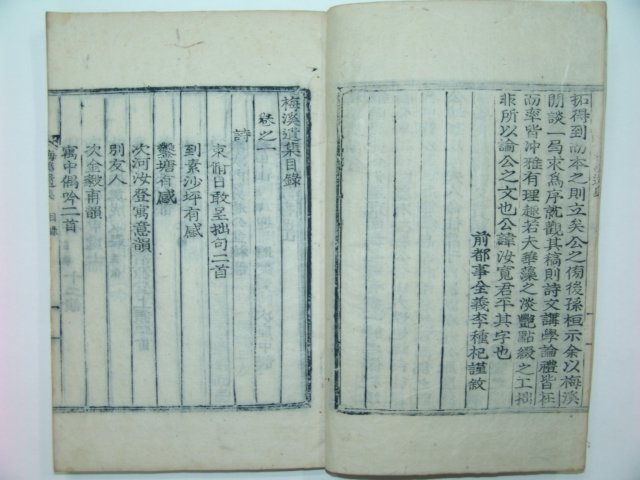 拓得到而本之則立矣公之傍後孫桓示余以梅溪
閒談一局求爲序就觀其稿則詩文講學論禮皆
而率皆冲雅有理趣若夫華藻之淡艶點綴之工拙
非所以論公之文也公諱汝寬君平其字也
前都事全義李種杞謹敘
梅溪遺集目錄
卷之一
詩
東郁日敢呈拙句二首
到素沙坪有感
鑿塘有感
次河汝登寓意韻
別友人
次金毅甫韻
寓中偶吟二首
梅溪遺集 目錄